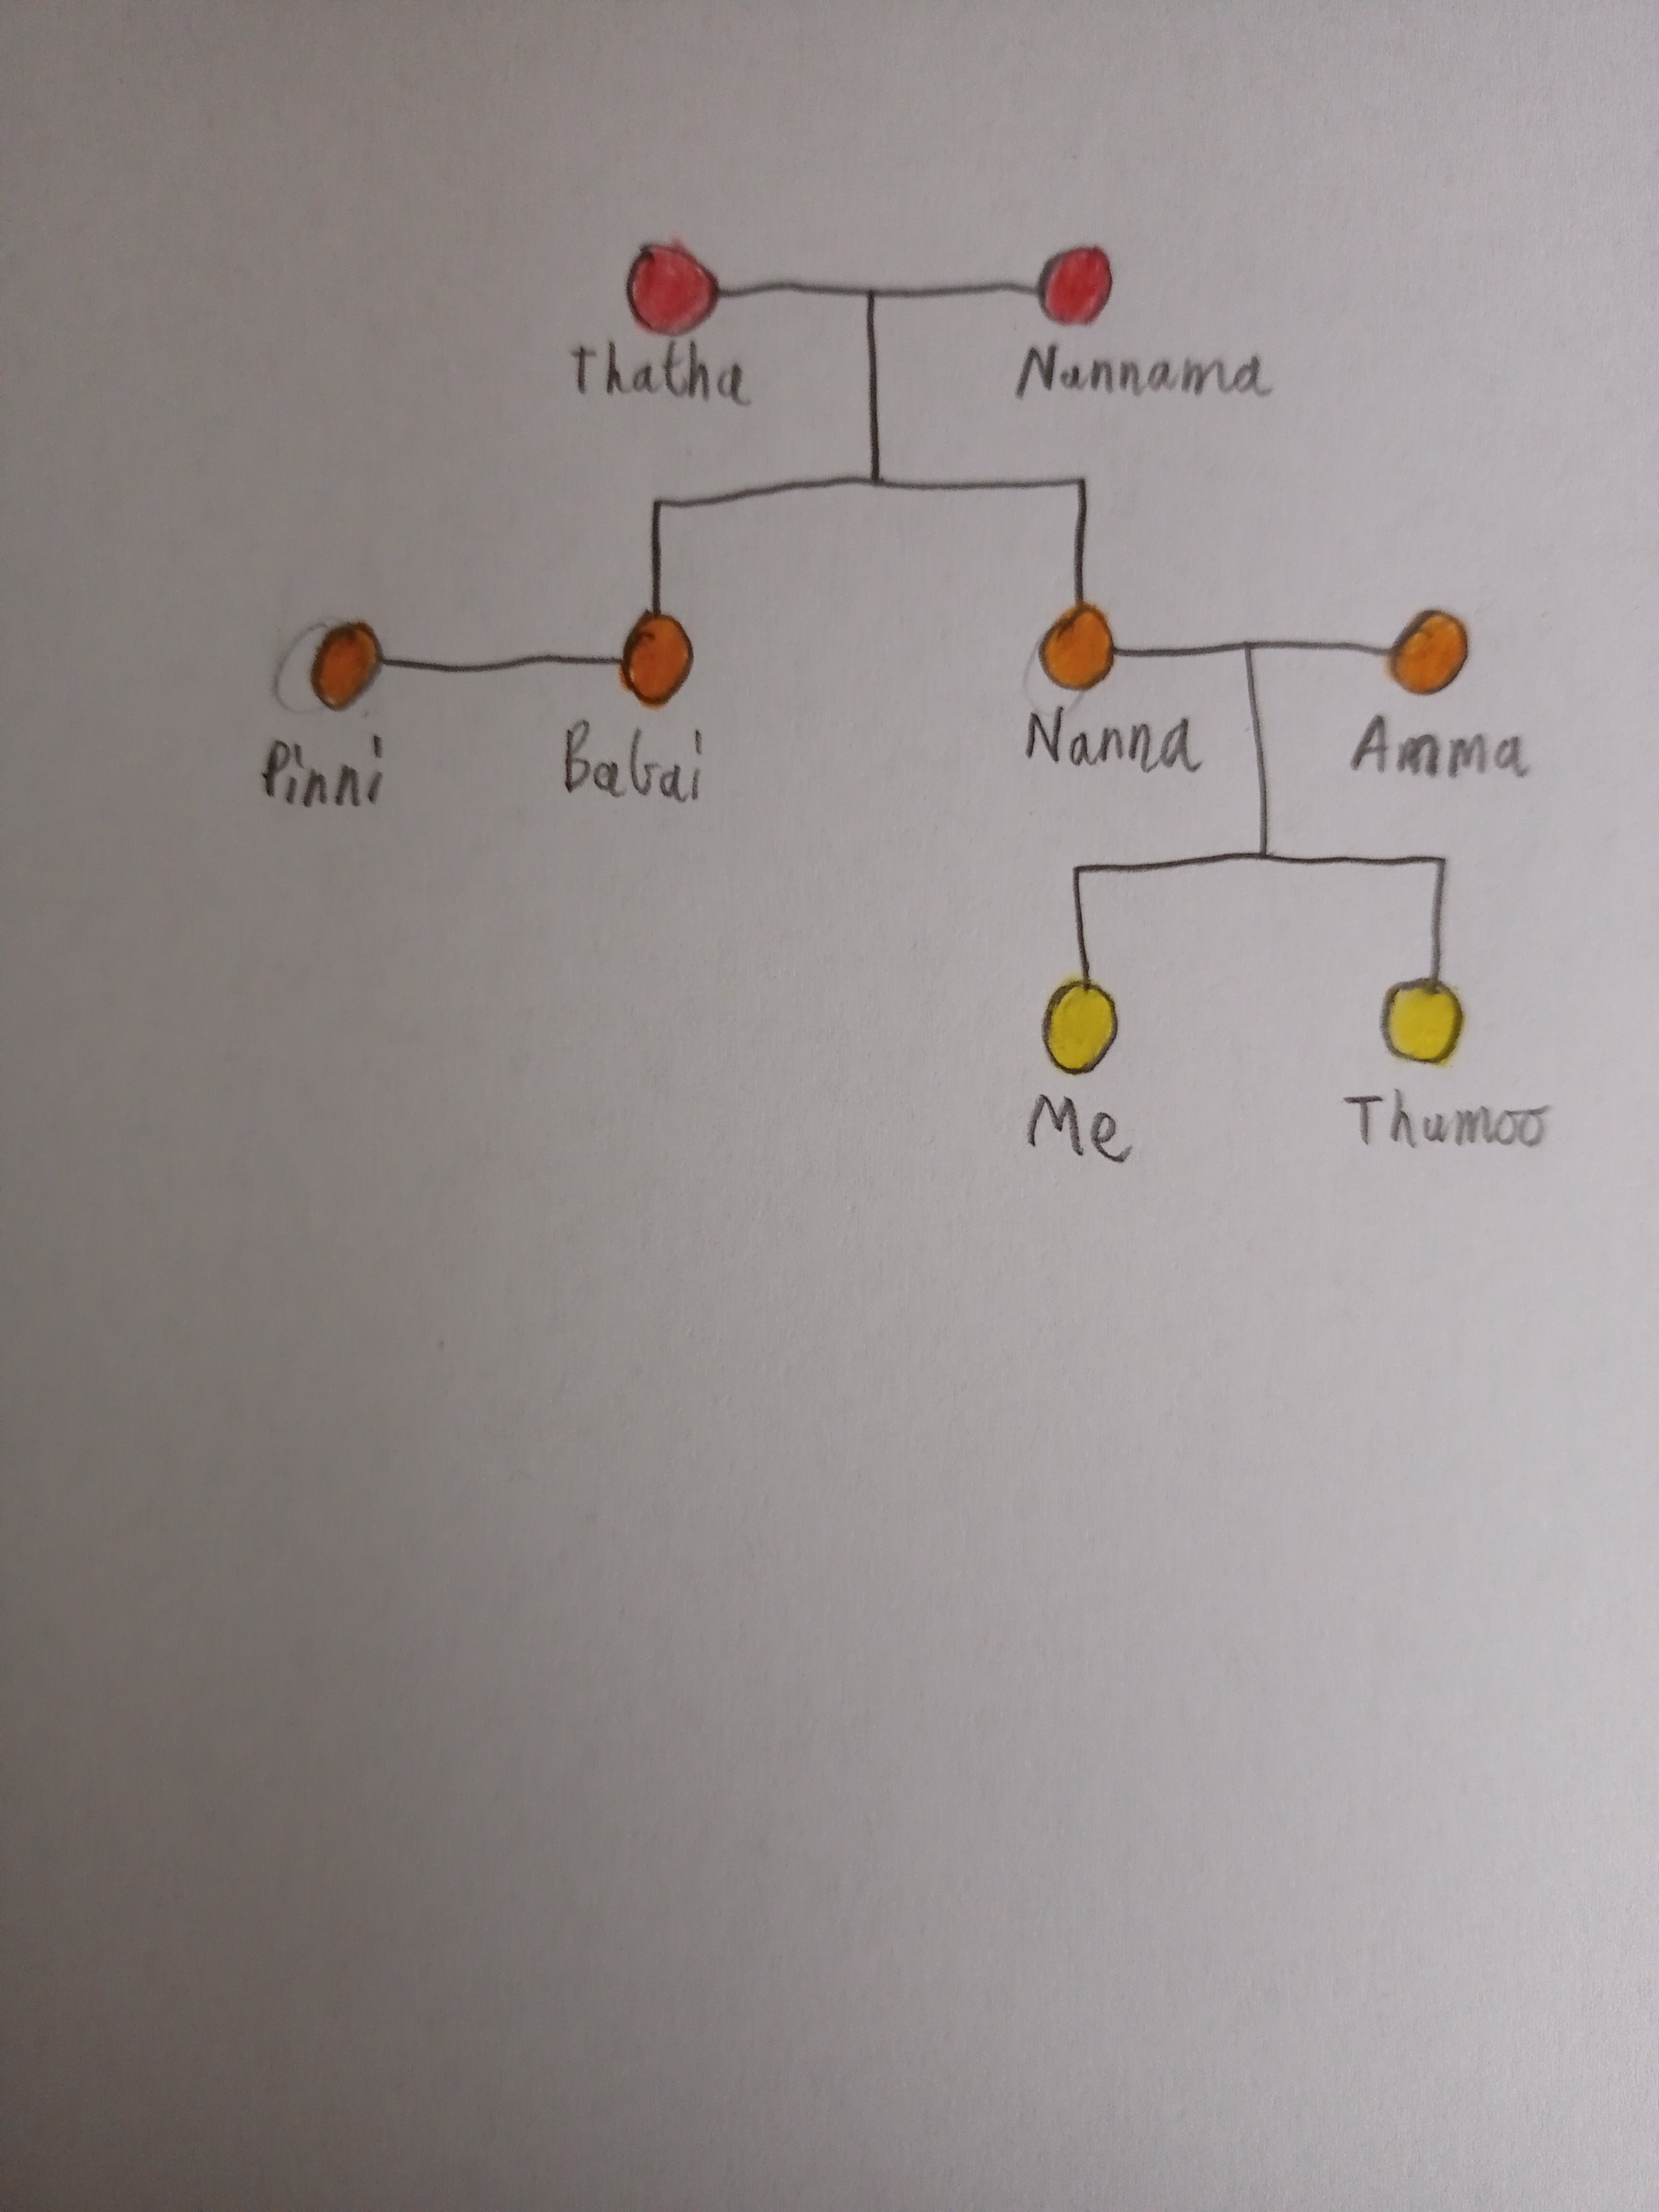 Thatha Nannama
Pinni Babai Nanna Amma
Me Thumoo